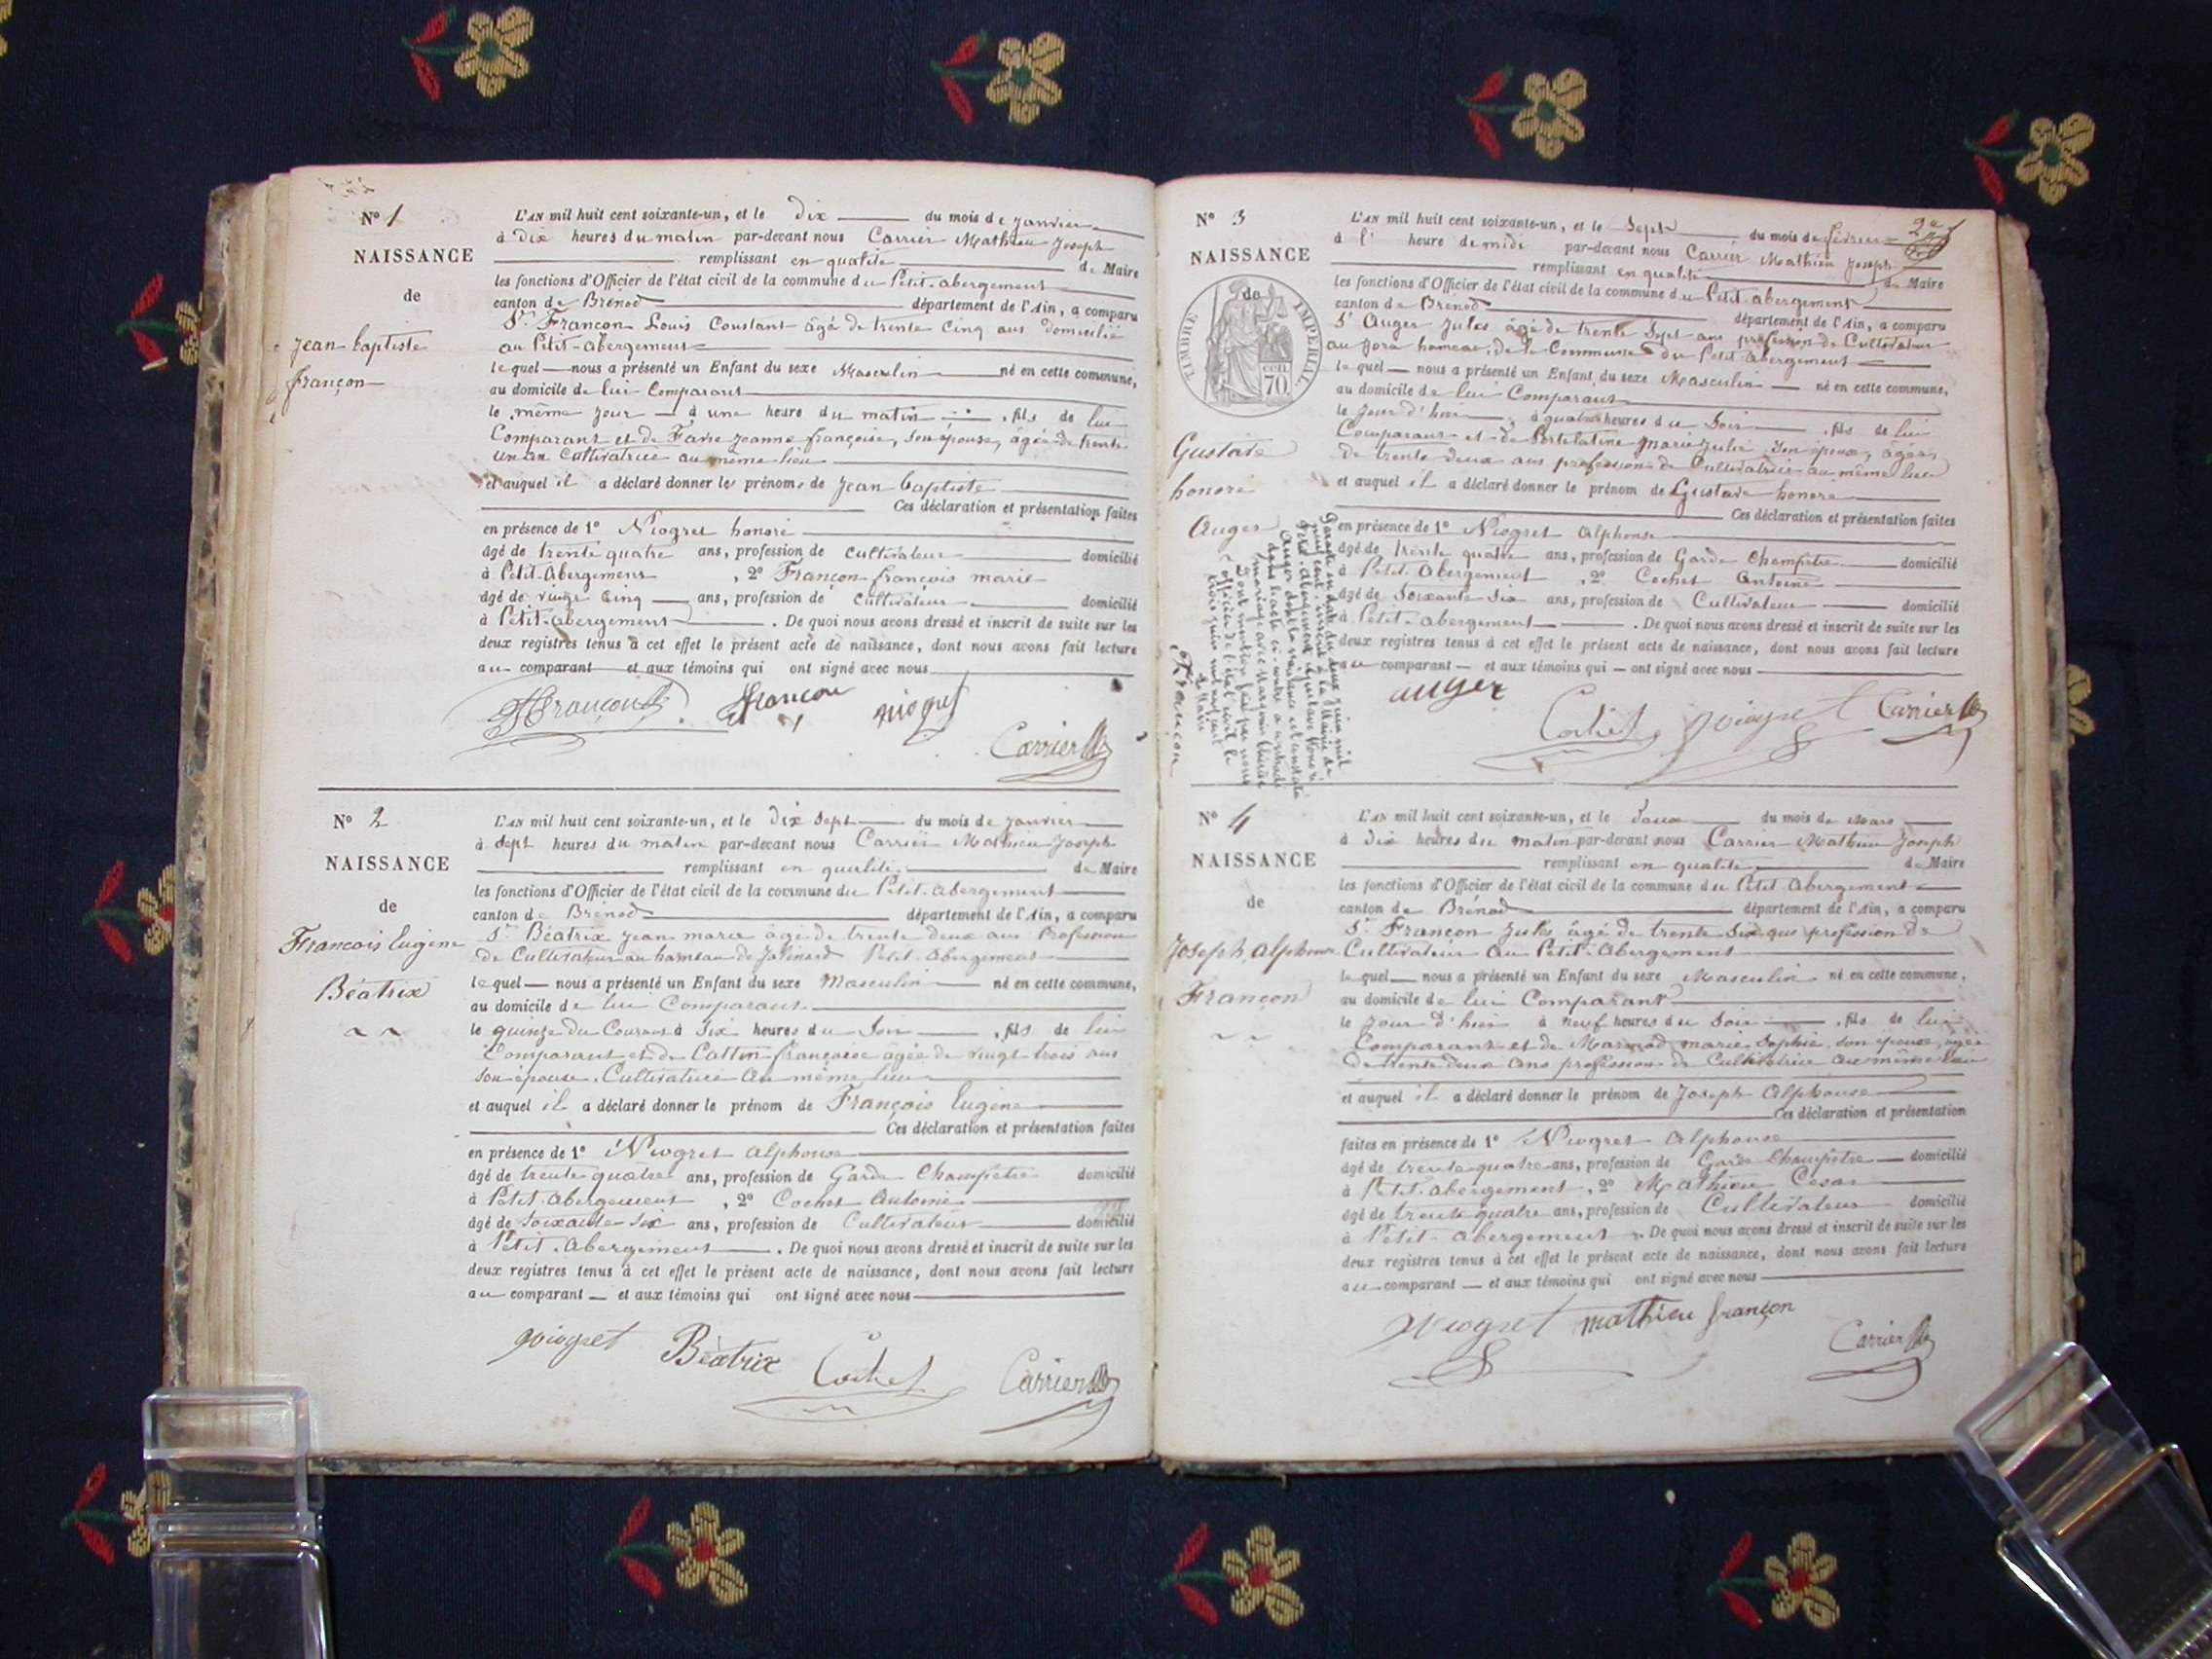 N° 1
NAISSANCE
de
Jean baptiste
françon
L'AN mil huit cent soixante-un, et le dix du mois de Janvier
à dix heures du matin par-devant nous Carrier Mathieu Joseph
remplissant en qualité de Maire
les fonctions d'Officier de l'état civil de la commune du Petit-abergement
canton de Brénod département de l'Ain, a comparu
Sr. Françon Louis Constant âgé de trente cinq ans domicilié
au Petit-abergement
lequel nous a présenté un Enfant du sexe Masculin né en cette commune,
au domicile de lui Comparant
le même jour à une heure du matin, fils de lui
Comparant et de Favre Jeanne françoise, son épouse, âgée de trente
un an Cultivatrice au même lieu
et auquel il a déclaré donner les prénoms de Jean baptiste
Ces déclaration et présentation faites
en présence de 1° Niogret honoré
âgé de trente quatre ans, profession de cultivateur domicilié
à Petit-Abergement, 2° Françon françois marie
âgé de vingt cinq ans, profession de cultivateur domicilié
à Petit-abergement. De quoi nous avons dressé et inscrit de suite sur les
deux registres tenus à cet effet le présent acte de naissance, dont nous avons fait lecture
au comparant et aux témoins qui ont signé avec nous
françon niogret
Carrier
N° 2
NAISSANCE
de
François Eugène
Béatrix
L'AN mil huit cent soixante-un, et le dix sept du mois de Janvier
à sept heures du matin par-devant nous Carrier Mathieu Joseph
remplissant en qualité de Maire
les fonctions d'Officier de l'état civil de la commune du Petit-abergement
canton de Brénod département de l'Ain, a comparu
Sr. Béatrix Jean marie âgé de trente deux ans Profession
de Cultivateur au hameau de Petit-Abergement
lequel nous a présenté un Enfant du sexe Masculin né en cette commune,
au domicile de lui Comparant
le quinze du Courant à six heures du Soir, fils de lui
Comparant et de Cattin françoise âgée de vingt trois ans
son épouse, Cultivatrice au même lieu
et auquel il a déclaré donner le prénom de François Eugène
Ces déclaration et présentation faites
en présence de 1° Niogret Alphonse
âgé de trente quatre ans, profession de Garde Champêtre domicilié
à Petit-Abergement, 2° Cochet Antoine
âgé de soixante-six ans, profession de Cultivateur domicilié
à Petit-Abergement. De quoi nous avons dressé et inscrit de suite sur les
deux registres tenus à cet effet le présent acte de naissance, dont nous avons fait lecture
au comparant et aux témoins qui ont signé avec nous
niogret Béatrix Cochet Carrier
N° 3
NAISSANCE
de
TIMBRE IMPERIAL
cen. 70
Gustave
honoré
Auger
L'AN mil huit cent soixante-un, et le Sept du mois de février
à l' heure de midi par-devant nous Carrier Mathieu Joseph
remplissant en qualité de Maire
les fonctions d'Officier de l'état civil de la commune du Petit-abergement
canton de Brénod département de l'Ain, a comparu
Sr Auger Jules âgé de trente Sept ans profession de Cultivateur
au Jora hameau de la Commune du Petit-Abergement
lequel nous a présenté un Enfant du sexe Masculin né en cette commune,
au domicile de lui Comparant
le Jour d'hier, à quatre heures du Soir, fils de lui
Comparant et de marie Julie son épouse, âgée
de trente deux ans profession de Cultivatrice au même lieu
et auquel il a déclaré donner le prénom de Gustave honoré
Ces déclaration et présentation faites
en présence de 1° Niogret Alphonse
âgé de trente quatre ans, profession de Garde Champêtre domicilié
à Petit-Abergement, 2° Cochet Antoine
âgé de Soixante Six ans, profession de Cultivateur domicilié
à Petit-abergement. De quoi nous avons dressé et inscrit de suite sur les
deux registres tenus à cet effet le présent acte de naissance, dont nous avons fait lecture
au comparant et aux témoins qui ont signé avec nous
auger
Cochet niogret Carrier
Françon
N° 4
NAISSANCE
de
Joseph Alphonse
Françon
L'AN mil huit cent soixante-un, et le Deux du mois de Mars
à Dix heures du matin par-devant nous Carrier Mathieu Joseph
remplissant en qualité de Maire
les fonctions d'Officier de l'état civil de la commune du Petit-Abergement
canton de Brénod département de l'Ain, a comparu
Sr. Françon Jules âgé de trente six ans profession de
Cultivateur au Petit-Abergement
lequel nous a présenté un Enfant du sexe Masculin né en cette commune,
au domicile de lui Comparant
le Jour d'hier à neuf heures du Soir, fils de lui
Comparant et de marie Sophie, son épouse, agée
de trente deux ans profession de Cultivatrice au même lieu
et auquel il a déclaré donner le prénom de Joseph Alphonse
Ces déclaration et présentation
faites en présence de 1° Niogret Alphonse
âgé de trente quatre ans, profession de Garde Champêtre domicilié
à Petit-abergement, 2° Mathieu César
âgé de trente quatre ans, profession de Cultivateur domicilié
à Petit-abergement. De quoi nous avons dressé et inscrit de suite sur les
deux registres tenus à cet effet le présent acte de naissance, dont nous avons fait lecture
au comparant et aux témoins qui ont signé avec nous
Niogret mathieu françon
Carrier